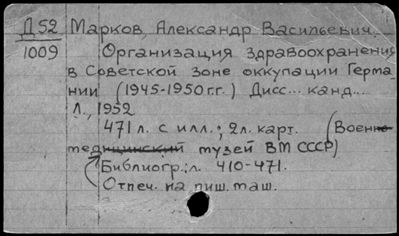 Д52 Марков, Александр Васильевич.
1009 Организация здравоохранения
в Советской зоне оккупации Герма-
нии (1945-1950 г.г.) Дисс... канд...
Л., 1952
471 л. с илл.; 2 л. карт. (Военно-
медицинский музей ВМ СССР)
Библиогр.: л. 410-471.
Отпеч. на пиш. маш.